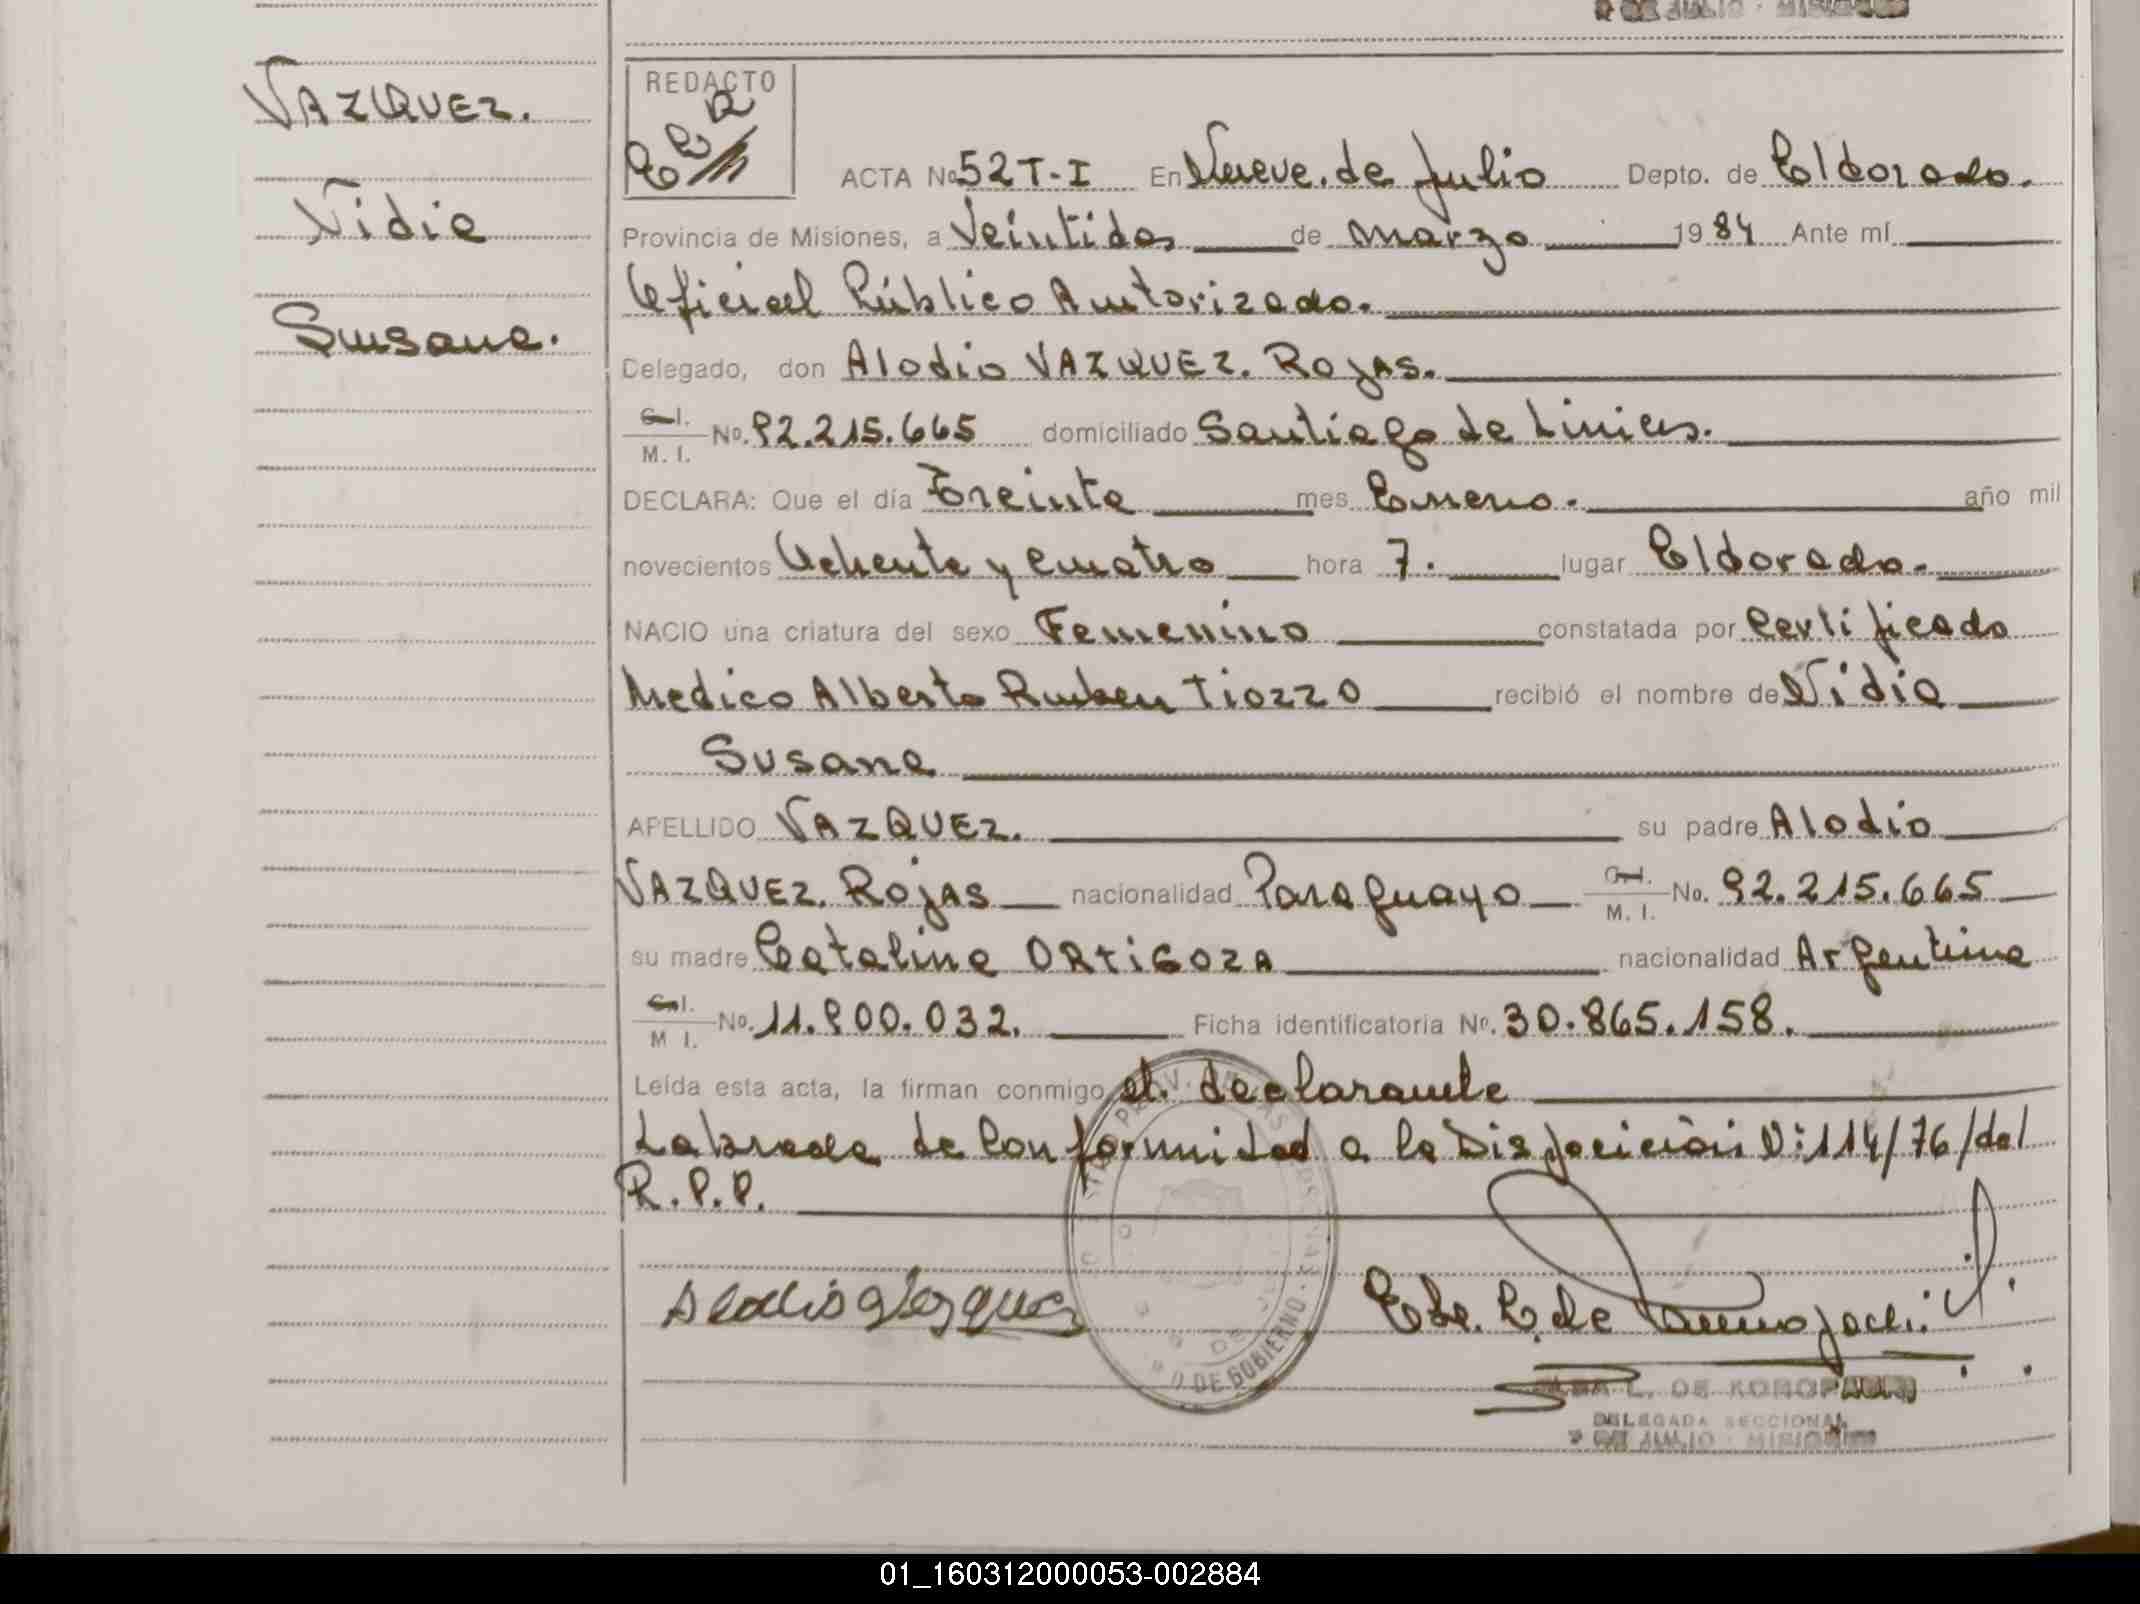 VAZQUEZ.
Nidia
Susana.
REDACTO
ACTA No 52 T-I En Nueve de Julio Depto. de Eldorado.
Provincia de Misiones, a Veintidos de marzo 1984 Ante mí
Oficial Público Autorizado.
Delegado, don Alodio VAZQUEZ. ROJAS.
C. I.
M. I. No. 92.215.665 domiciliado Santiago de Liniers.
DECLARA: Que el día Treinta mes Enero. año mil
novecientos Ochenta y cuatro hora 7. lugar Eldorado.
NACIO una criatura del sexo Femenino constatada por Certificado
Medico Alberto Ruben Tiozzo recibió el nombre de Nidia
Susana
APELLIDO VAZQUEZ. su padre Alodio
VAZQUEZ. ROJAS nacionalidad Paraguayo C. I. M. I. No. 92.215.665
su madre Catalina ORTIGOZA nacionalidad Argentina
C. I.
M I. No. 11.900.032. Ficha identificatoria No. 30.865.158.
Leída esta acta, la firman conmigo el declarante
Labrada de Conformidad a la Disposición Nº 114/76/del
R.P.P.
Alodio Vazquez
DE GOBIERNO
L. DE
DELEGADA SECCIONAL
9 DE JULIO - MISIONES
01_160312000053-002884